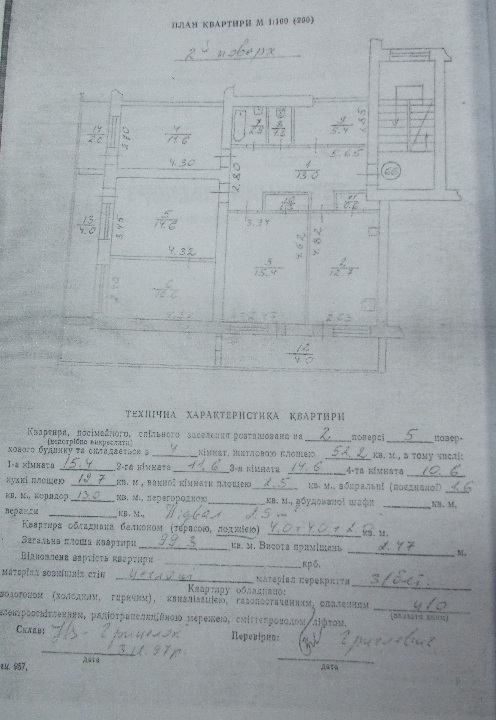 ПЛАН КВАРТИРИ М 1:100 (200)
2й поверх
14
2.0
2.70
4
11.6
4.30
7
8
9
5.4
5.65
1
13.0
2.80
66
13
4.0
3.45
5
14.6
4.32
3.24
3
15.4
4.62
4.82
2
12.7
6
10.6
2.63
12
4.0
ТЕХНІЧНА ХАРАКТЕРИСТИКА КВАРТИРИ
Квартира, посімейного, спільного заселення розташована на 2 поверсі 5 повер-
(непотрібне викреслити)
хового будинку та складається з 4 кімнат, житловою площею 52.2 кв. м., а тому числі:
1-а кімната 15.4 2-га кімната 11.6 3-я кімната 14.6 4-та кімната 10.6
кухні площею 12.7 кв. м., ванної кімнати площею 2.5 кв. м., вбиральні (поєднаної) 1.6
кв. м., коридор 13.0 кв. м., перегородкою кв. м., вбудованої шафи кв. м.,
веранди кв. м., Підвал 2.5
Квартира обладнана балконом (терасою, лоджією) 4.0+4.0+2.0 кв. м.
Загальна площа квартири 99.3 кв. м. Висота приміщень 2.47 м.
Відновлена вартість квартири крб.
матеріал зовнішніх стін цегла матеріал перекриття з/бет
Квартиру обладнано:
водогоном (холодним, гарячим), каналізацією, газопостачанням, опаленням ц/о
(вказати яким)
електроосвітленням, радіотрансляційною мережею, сміттєпроводом, ліфтом.
Склав: Перевірив:
дата дата
ам. 957,